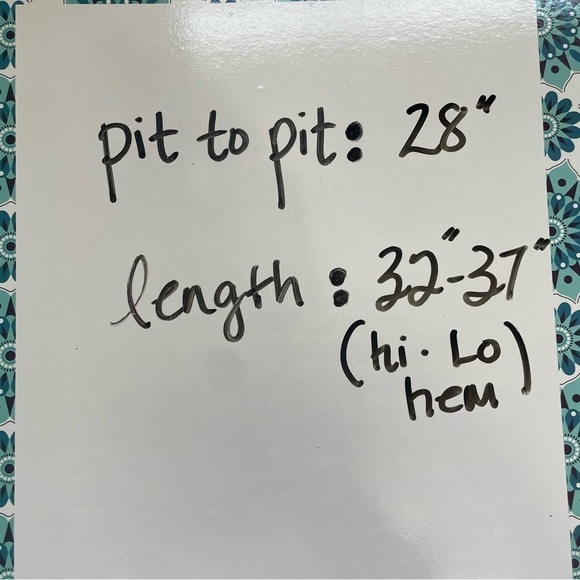 pit to pit: 28"
length: 32"-37"
(hi·Lo
hem)